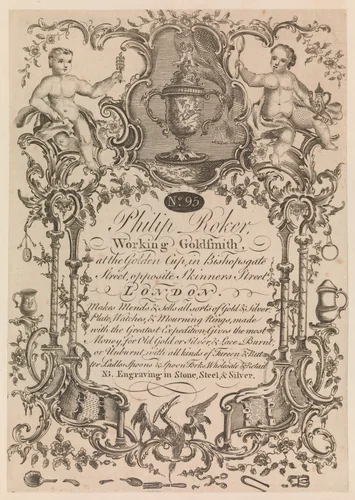 No. 95
Philip Roker,
Working Goldsmith,
at the Golden Cup, in Bishopsgate
Street, opposite Skinners Street,
LONDON.
Makes Mends & Sells all sorts of Gold & Silver
Plate, Watches, & Mourning Rings, made
with the Greatest Expedition, gives the most
Money, for Old Gold or Silver, & Lace Burnt,
or Unburnt, with all kinds of Tureen &
ter Ladles Spoons & Spoon Forks, Wholesale & Retail
NB. Engraving in Stone, Steel, & Silver.